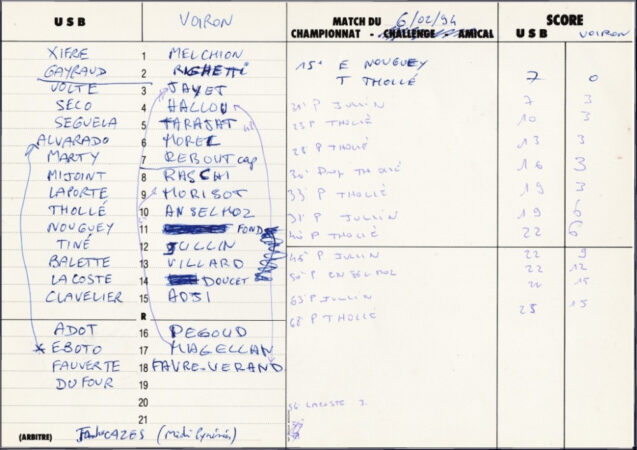 U S B VOIRON MATCH DU 6/02/94 SCORE
CHAMPIONNAT - CHALLENGE - AMICAL U S B VOIRON
XIFRE 1 MELCHION
GAYRAUD 2 RIGHETTI
15' E NOUGUEY
T THOLLÉ 7 0
VOLTE 3 JAYET
SECO 4 HALLOU
21' P JULLIN 7 3
SEGUELA 5 TARAJAT
23' P THOLLÉ 10 3
ALVARADO 6 MOREL
28' P THOLLÉ 13 3
MARTY 7 REBOUT cap
MIJOINT 8 RASCHI
30' Drop THOLLÉ 16 3
LAPORTE 9 MORISOT
33' P THOLLÉ 19 3
THOLLÉ 10 ANSELMOZ
P JULLIN 19 6
NOUGUEY 11 FOND
40' P THOLLÉ 22 6
TINÉ 12 JULLIN
BALETTE 13 VILLARD
45' P JULLIN 22 9
LACOSTE 14 DOUCET
50' P ENSELMOZ 22 12
CLAVELIER 15 ADJI
63' P JULLIN 22 15
R
68' P THOLLÉ 25 15
ADOT 16 PEGOUD
* EBOTO 17 MAGELLAN
FAUVERTE 18 FAVRE-VERAND
DUFOUR 19
20
LACOSTE J.
21
(ARBITRE) CAZES (Midi Pyrénées)